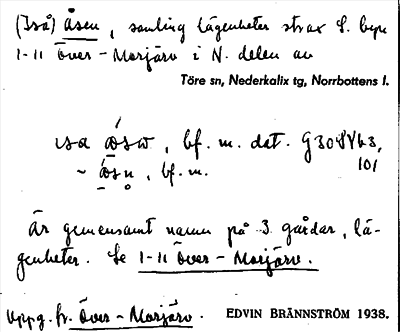 (Iså) Åsen, samling lägenheter strax S. byn
1-11 Över-Morjärv i N. delen av
Töre sn, Nederkalix tg, Norrbottens l.
bf. m. dat.
101
~ bf. m.
Är gemensamt namn på 3 gårdar, lä-
genheter. Se 1-11 Över-Morjärv.
Uppg. fr. Över-Morjärv. EDVIN BRÄNNSTRÖM 1938.